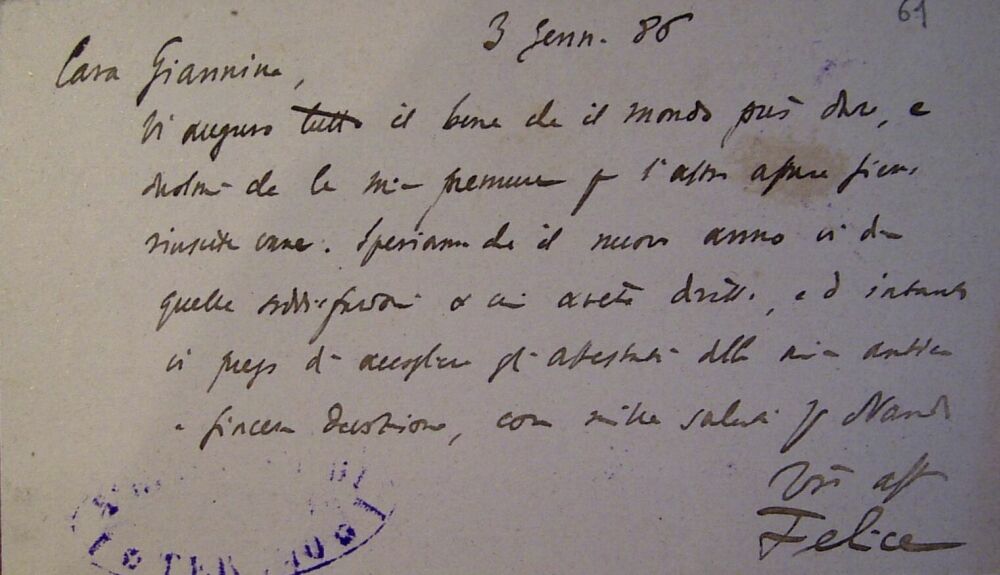 61
3 Genn. 86
Cara Giannina,
Vi auguro tutto il bene che il mondo può dare, e
duolmi che le mie premure p l'altro affare siano
riuscite vane. Speriamo che il nuovo anno vi dia
quelle soddisfazioni a cui avete dritto, ed intanto
vi prego di accogliere gli attestati della mia antica
e sincera devozione, con mille saluti p Nando
Vro aff
Felice
TER MO